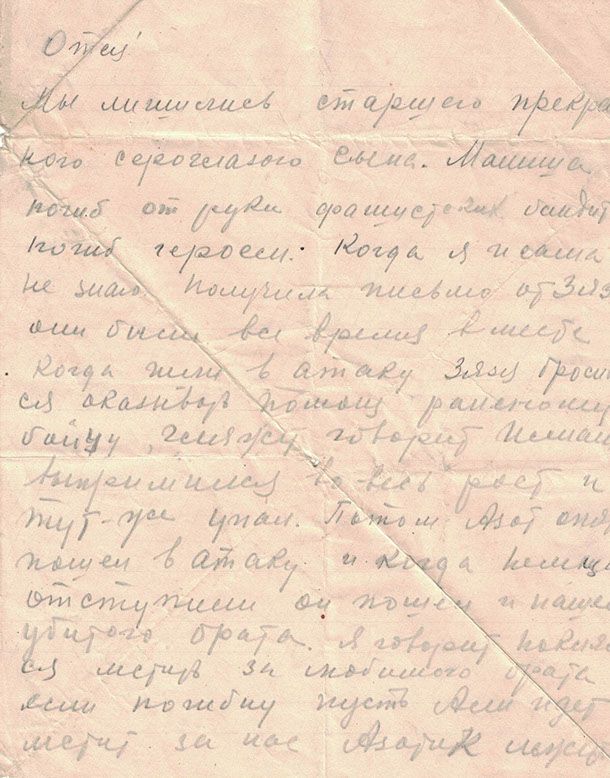 Отец!
Мы лишились старшего прекра
ного сероглазого сына.
погиб от руки фашистских бандит
погиб героем. Когда я и сама
не знаю. Получила письмо от
они были все время вместе
когда шли в атаку Зязя броси
ся оказывать помощь раненому
бойцу, говорит
выпрямился во-весь рост и
тут-же упал. Потом Азат опя
пошел в атаку и когда немцы
отступили он пошел и нашел
убитого брата. Я говорит
ся мстить за любимого брата
если погибну пусть Али идет
мстит за нас Азатик